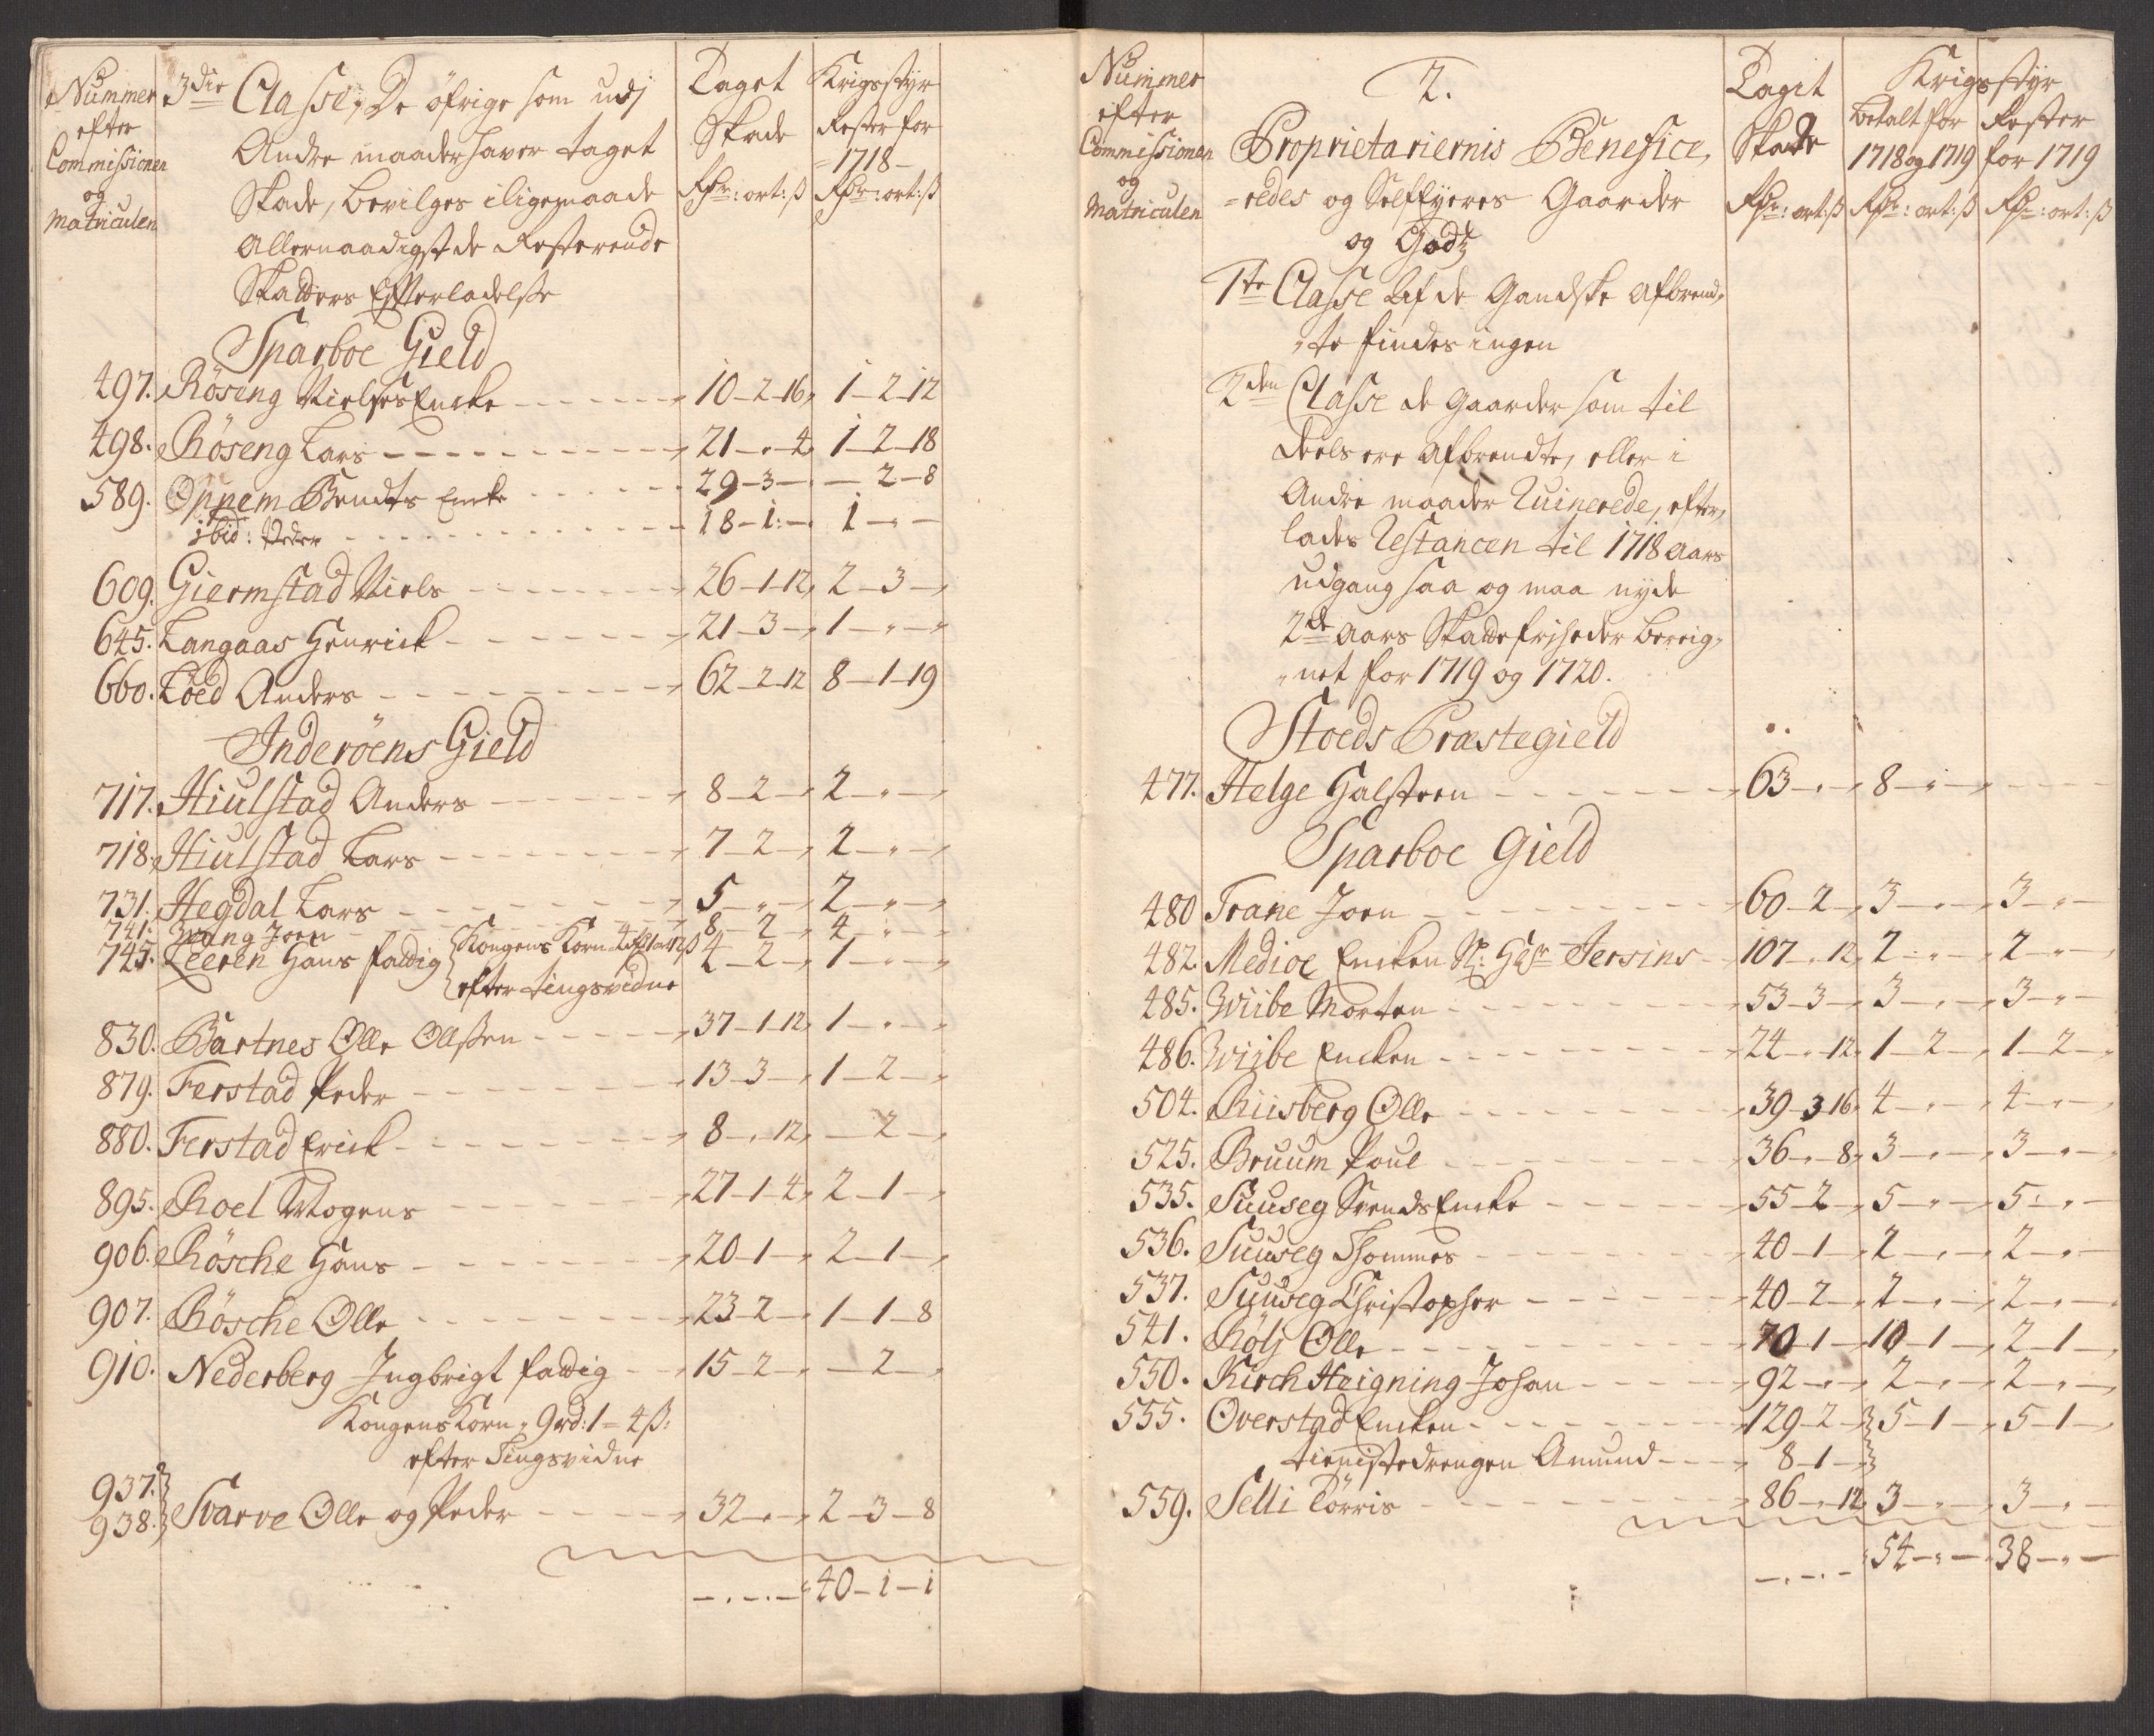 Nummer
efter
Commissionen
og
Matriculen
3die Classe, De öfrige som udj
Andre maader haver taget
Skade, bevilges iligemaade
Allernaadigst de Resterende
Skatters Efterladelsse
Taget
Skade
Rdr: ort: ß
Krigsstyr
Rester for
1718
Rdr: ort: ß
Sparboe Gield
497. Rösing Nielses Encke 10-2-16 1-2-12
498. Röseng Lars 21-"-4 1-2-18
589. Oppem Bendts Encke 29-3-" "-2-8
ibid: Peder 18-1-" 1-"-"
609. Giermstad Niels 26-1-12 2-3-"
645. Langaas Henrick 21-3-" 1-"-"
660. Löed Anders 62-2-12 8-1-19
Inderöens Gield
717. Hiulstad Anders 8-2-" 2-"-"
718. Hiulstad Lars 7-2-" 2-"-"
731. Hegdal Lars 5-"-" 2-"-"
741. Wang Joen 8-2-" 4-"-"
745. Leeren Hans fattig Kongens Korn 4-2-" 1-"-"
efter tingsvidne
830. Bartnes Olle Olssen 37-1-12 1-"-"
879. Ferstad Peder 13-3-" 1-2-"
880. Ferstad Erick 8-"-12 "-2-"
895. Roel Mogens 27-1-4 2-1-"
906. Rösche Hans 20-1-" 2-1-"
907. Rösche Olle 23-2-" 1-1-8
910. Nederberg Ingbrigt fattig 15-2-" "-2-"
Kongens Korn 9rd: 1-4ß:
efter Tingsvidne
937.
938. Svarve Olle og Peder 32-"-" 2-3-8
40-1-1
Nummer
efter
Commissionen
og
Matriculen
2.
Proprietariernis Benefice,
redes og Selfeyeres Gaarder
og Godtz
Tagit
Skade
Rdr: ort: ß
Krigsstyr
betalt for
1718 og 1719
Rdr: ort: ß
Rester
for 1719
Rdr: ort: ß
1te Classe Af de Gandske Afbrend,
te findes ingen
2den Classe de Gaarder som til
deels ere Afbrendte, eller i
Andre maader Ruinerede, efter,
lades Restancen til 1718 Aars
udgang saa og maa nyde
2de Aars Skattefriheder bereig,
net for 1719 og 1720.
Stoeds Præstegield
477. Helge Halsteen 63-"-" 8-"-"
Sparboe Gield
480 Trane Joen 60-2-" 3-"-" 3-"-"
482. Medioe Encken Jersins 107-"-12 2-"-" 2-"-"
485. Wiibe Morten 53-3-" 3-"-" 3-"-"
486. Wiibe Encken 24-"-12 1-2-" 1-2-"
504. Riisberg Olle 39-3-16 4-"-" 4-"-"
525. Bruum Poul 36-"-8 3-"-" 3-"-"
535. Suuseg Svends Encke 55-2-" 5-"-" 5-"-"
536. Suuseg Thommes 40-1-" 2-"-" 2-"-"
537. Suuseg Christopher 40-2-" 2-"-" 2-"-"
541. Rölj Olle 70-1-" 10-1-" 2-1-"
550. Kirch Heigning Johan 92-"-" 2-"-" 2-"-"
555. Overstad Encken 129-2-" 5-1-" 5-1-"
tienistedrengen Amund 8-1-"
559. Selli Törris 86-"-12 3-"-" 3-"-"
54-"-" 38-"-"